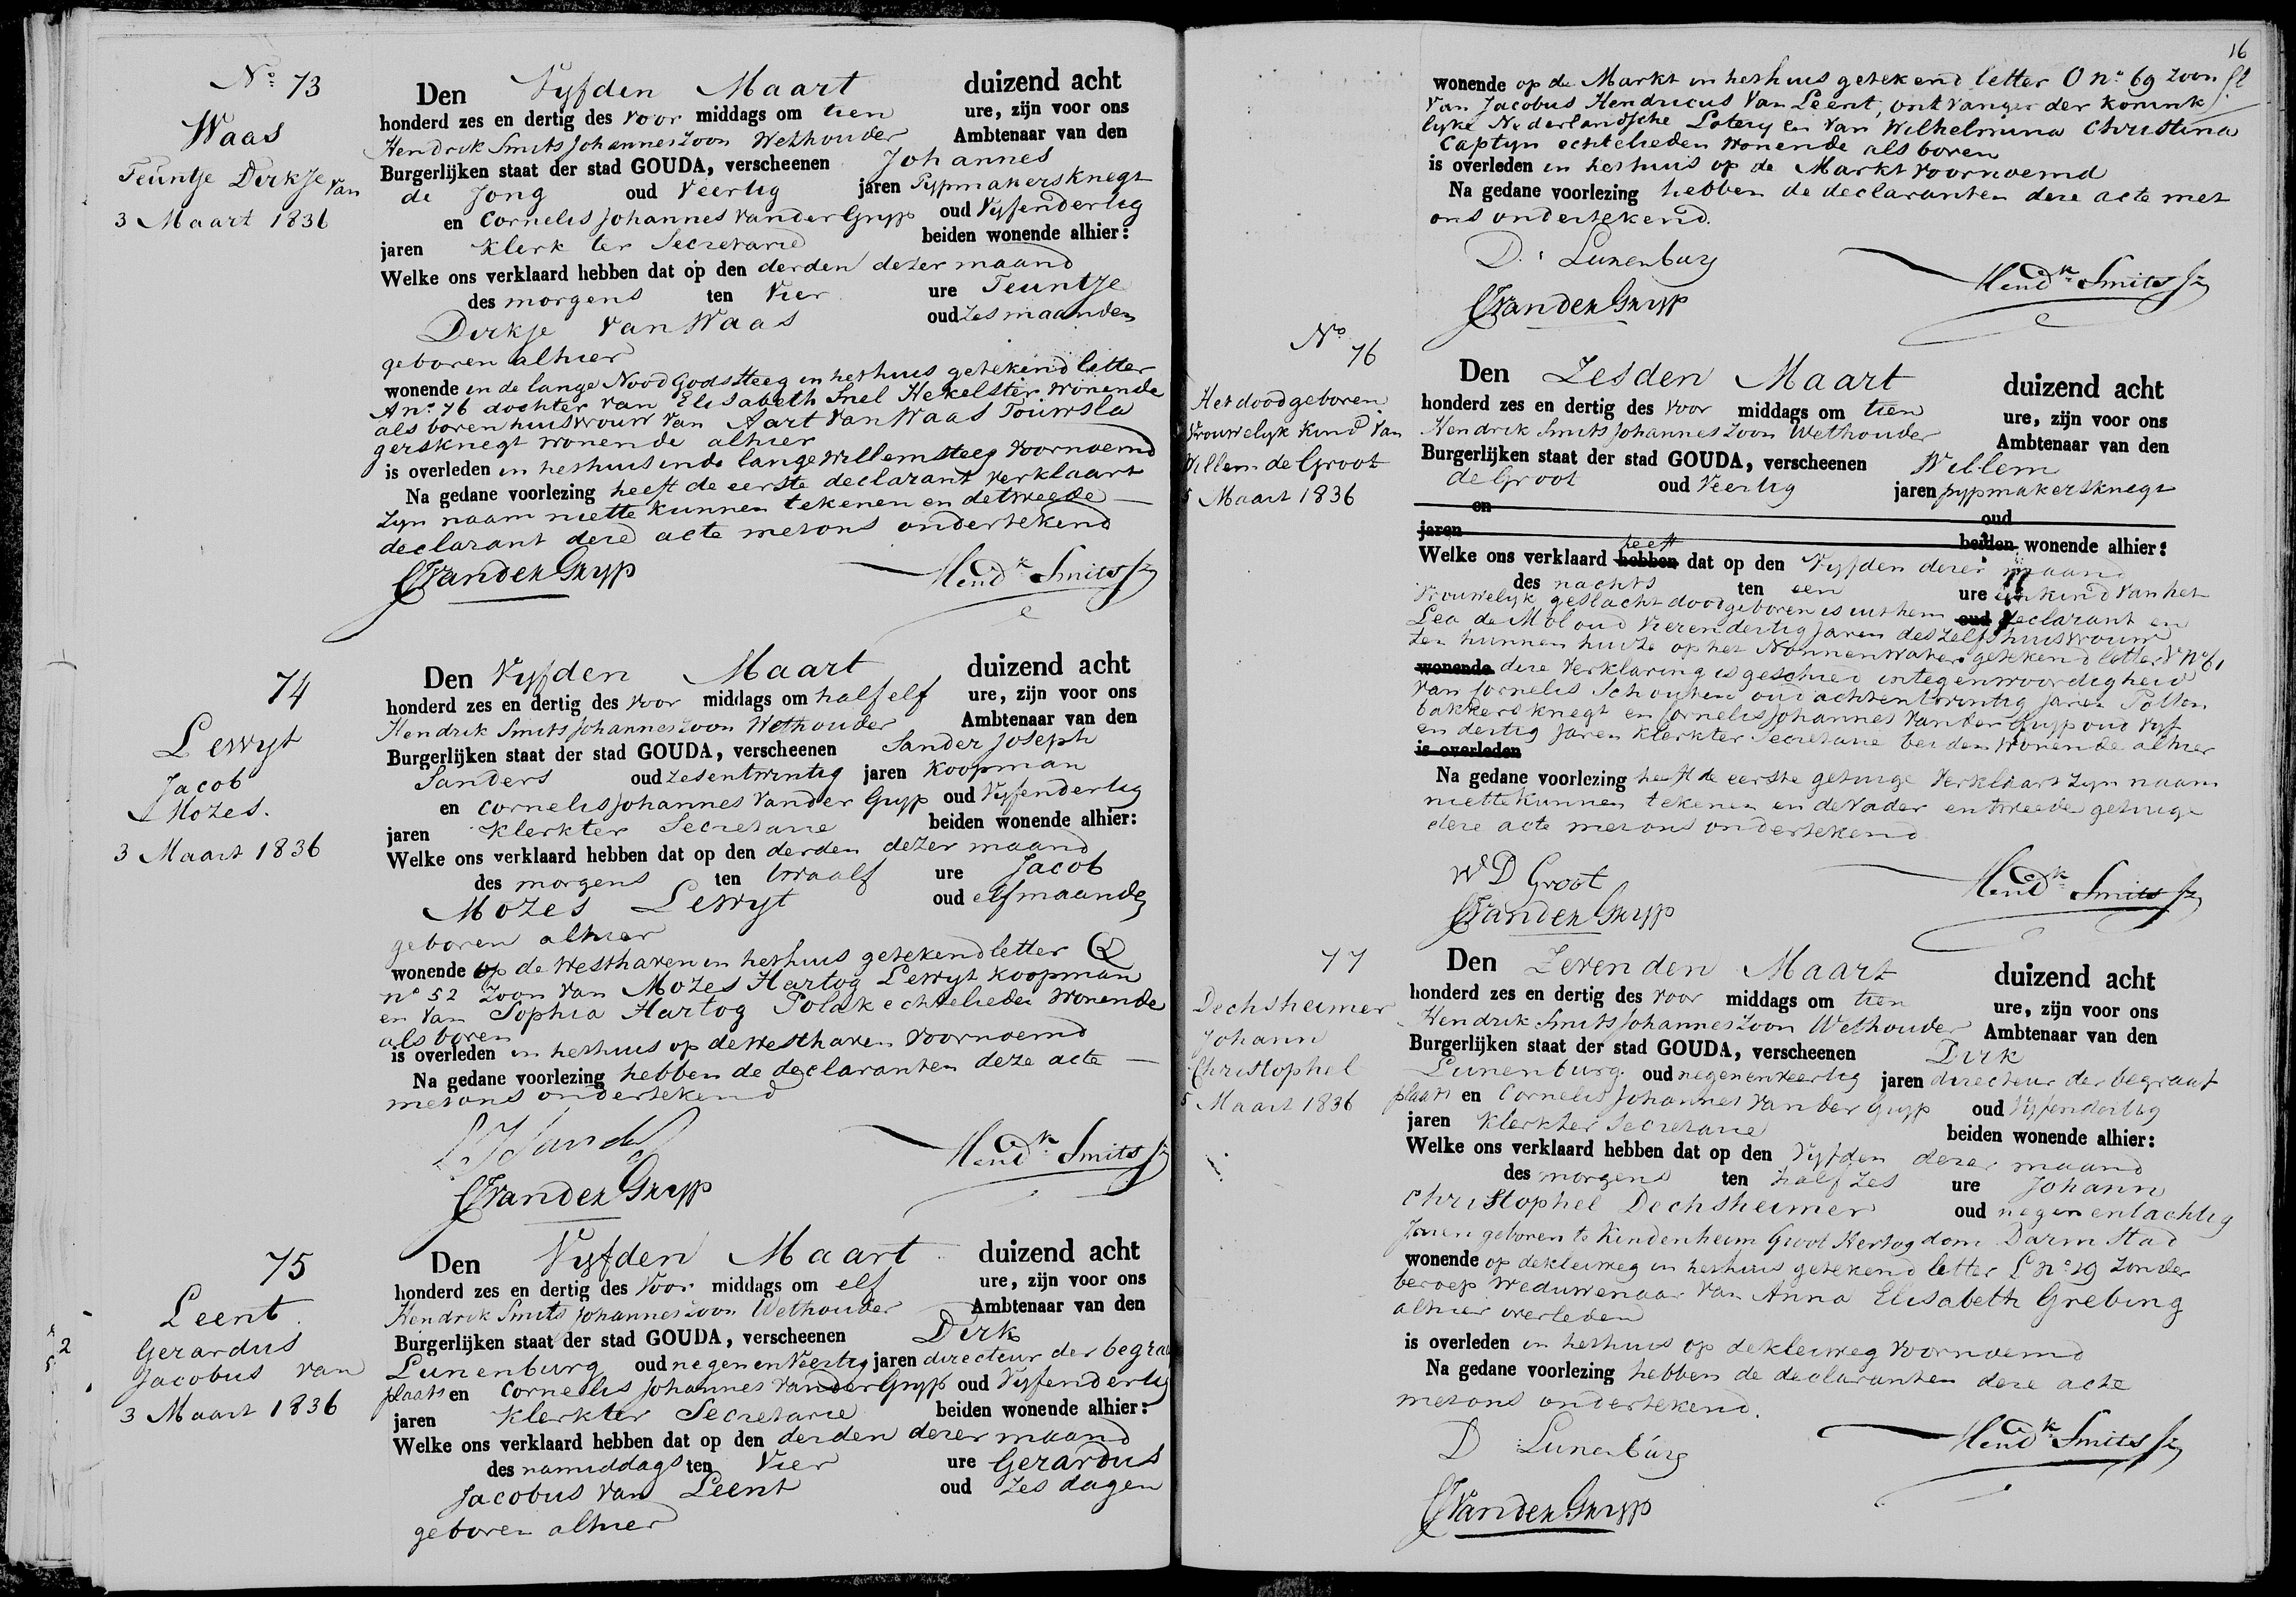 Nº 73
Waas
Teuntje Dirkje van
3 Maart 1836
Den Vyfden Maart duizend acht
honderd zes en dertig des voor middags om tien ure, zijn voor ons
Hendrik Smits Johannes Zoon Wethouder Ambtenaar van den
Burgerlijken staat der stad GOUDA, verscheenen Johannes
de Jong oud Veertig jaren Pypmakersknegt
en Cornelis Johannes van der Gryp oud Vyfendertig
jaren Klerk ter Secretarie beiden wonende alhier:
Welke ons verklaard hebben dat op den derden dezer maand
des morgens ten Vier ure Teuntje
Dirkje van Waas oud Zes maanden
geboren alhier
wonende in de lange Nood Godssteeg in het huis getekend letter
A nº 76 dochter van Elisabeth Snel Hekelster wonende
als boren huisvrouw van Aart van Waas Touwsla
gersknegt wonende alhier
is overleden in het huis in de lange Willemsteeg voornoemd
Na gedane voorlezing heeft de eerste declarant verklaart
zyn naam niet te kunnen tekenen en de tweede
declarant deze acte met ons ondertekend
CJVanderGryp Hendk Smits Jz
74
Lewyt
Jacob
Mozes.
3 Maart 1836
Den Vyfden Maart duizend acht
honderd zes en dertig des voor middags om half elf ure, zijn voor ons
Hendrik Smits Johannes Zoon Wethouder Ambtenaar van den
Burgerlijken staat der stad GOUDA, verscheenen Sander Joseph
Sanders oud zesentwintig jaren Koopman
en Cornelis Johannes van der Gryp oud Vyfendertig
jaren Klerk ter Secretarie beiden wonende alhier:
Welke ons verklaard hebben dat op den derden dezer maand
des morgens ten twaalf ure Jacob
Mozes Lewyt oud elf maanden
geboren alhier
wonende op de Westhaven in het huis getekend letter Q
nº 52 Zoon van Mozes Hartog Lewyt koopman
en van Sophia Hartog Polak echtelieden wonende
als boren
is overleden in het huis op de Westhaven voornoemd
Na gedane voorlezing hebben de declaranten deze acte
met ons ondertekend
Hendk Smits Jz
CJVanderGryp
75
Leent
Gerardus
Jacobus van
3 Maart 1836
Den Vyfden Maart duizend acht
honderd zes en dertig des voor middags om elf ure, zijn voor ons
Hendrik Smits Johannes Zoon Wethouder Ambtenaar van den
Burgerlijken staat der stad GOUDA, verscheenen Dirk
Lunenburg oud negenenveertig jaren directeur der begraaf
plaats en Cornelis Johannes van der Gryp oud Vyfendertig
jaren Klerk ter Secretarie beiden wonende alhier:
Welke ons verklaard hebben dat op den derden dezer maand
des namiddags ten Vier ure Gerardus
Jacobus van Leent oud Zes dagen
geboren alhier
16
wonende op de Markt in het huis getekend letter O nº 69 zoon
van Jacobus Hendricus van Leent, ontvanger der konink
lyke Nederlandsche Lotery en van Wilhelmina Christina
Captyn echtelieden wonende als boren
is overleden in het huis op de Markt voornoemd
Na gedane voorlezing hebben de declaranten deze acte met
ons ondertekend.
D. Lunenburg
Hendk Smits Jz
CJVanderGryp
Nº 76
Het doodgeboren
vrouwelyk kind van
Willem de Groot
5 Maart 1836
Den Zesden Maart duizend acht
honderd zes en dertig des voor middags om tien ure, zijn voor ons
Hendrik Smits Johannes Zoon Wethouder Ambtenaar van den
Burgerlijken staat der stad GOUDA, verscheenen Willem
de Groot oud Veertig jaren pypmakersknegt
en oud
jaren beiden wonende alhier:
Welke ons verklaard hebben heeft dat op den Vyfden dezer maand
des nachts ten een ure een kind van het
vrouwelyk geslacht doodgeboren is uit hem oud declarant en
Lea de Mol oud vierendertig jaren deszelfs huisvrouw
ten hunnen huize op het Nonnenwater getekend letter nº 61
wonende deze verklaring is geschied in tegenwoordigheid
van Cornelis Schouten oud achtentwintig jaren Potten
bakkersknegt en Cornelis Johannes van der Gryp oud vyf
en dertig jaren klerk ter Secretarie beiden wonende alhier
is overleden
Na gedane voorlezing heeft de eerste getuige verklaart zyn naam
niet te kunnen tekenen en de vader en tweede getuige
deze acte met ons ondertekend
W D Groot
Hendk Smits Jz
CJVanderGryp
77
Dechsheimer
Johann
Christophel
5 Maart 1836
Den Zevenden Maart duizend acht
honderd zes en dertig des voor middags om tien ure, zijn voor ons
Hendrik Smits Johannes Zoon Wethouder Ambtenaar van den
Burgerlijken staat der stad GOUDA, verscheenen Dirk
Lunenburg oud negenenveertig jaren directeur der begraaf
plaats en Cornelis Johannes van der Gryp oud Vyfendertig
jaren Klerk ter Secretarie beiden wonende alhier:
Welke ons verklaard hebben dat op den Vyfden dezer maand
des morgens ten half zes ure Johann
Christophel Dechsheimer oud negenentachtig
Jaren geboren te Kindenheim Groot Hertogdom Darmstad
wonende op de kleiweg in het huis getekend letter L nº 29 zonder
beroep weduwenaar van Anna Elisabeth Grebing
alhier overleden
is overleden in het huis op de kleiweg voornoemd
Na gedane voorlezing hebben de declaranten deze acte
met ons ondertekend.
D Lunenburg
Hendk Smits Jz
CJVanderGryp